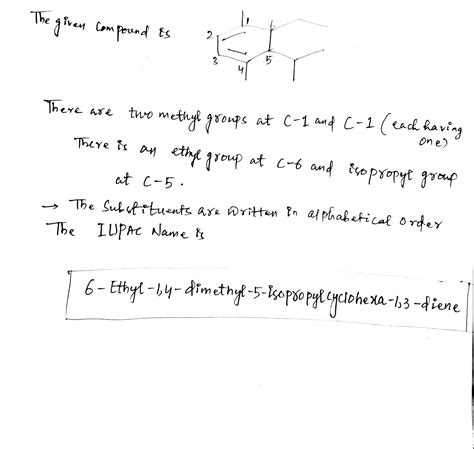 The given compound is
1
2
3
4
5
There are two methyl groups at C-1 and C-1 (each having
one)
There is an ethyl group at C-6 and isopropyl group
at C-5.
→ The Substituents are written in alphabetical order
The IUPAC Name is
6-Ethyl-1,4-dimethyl-5-isopropylcyclohexa-1,3-diene